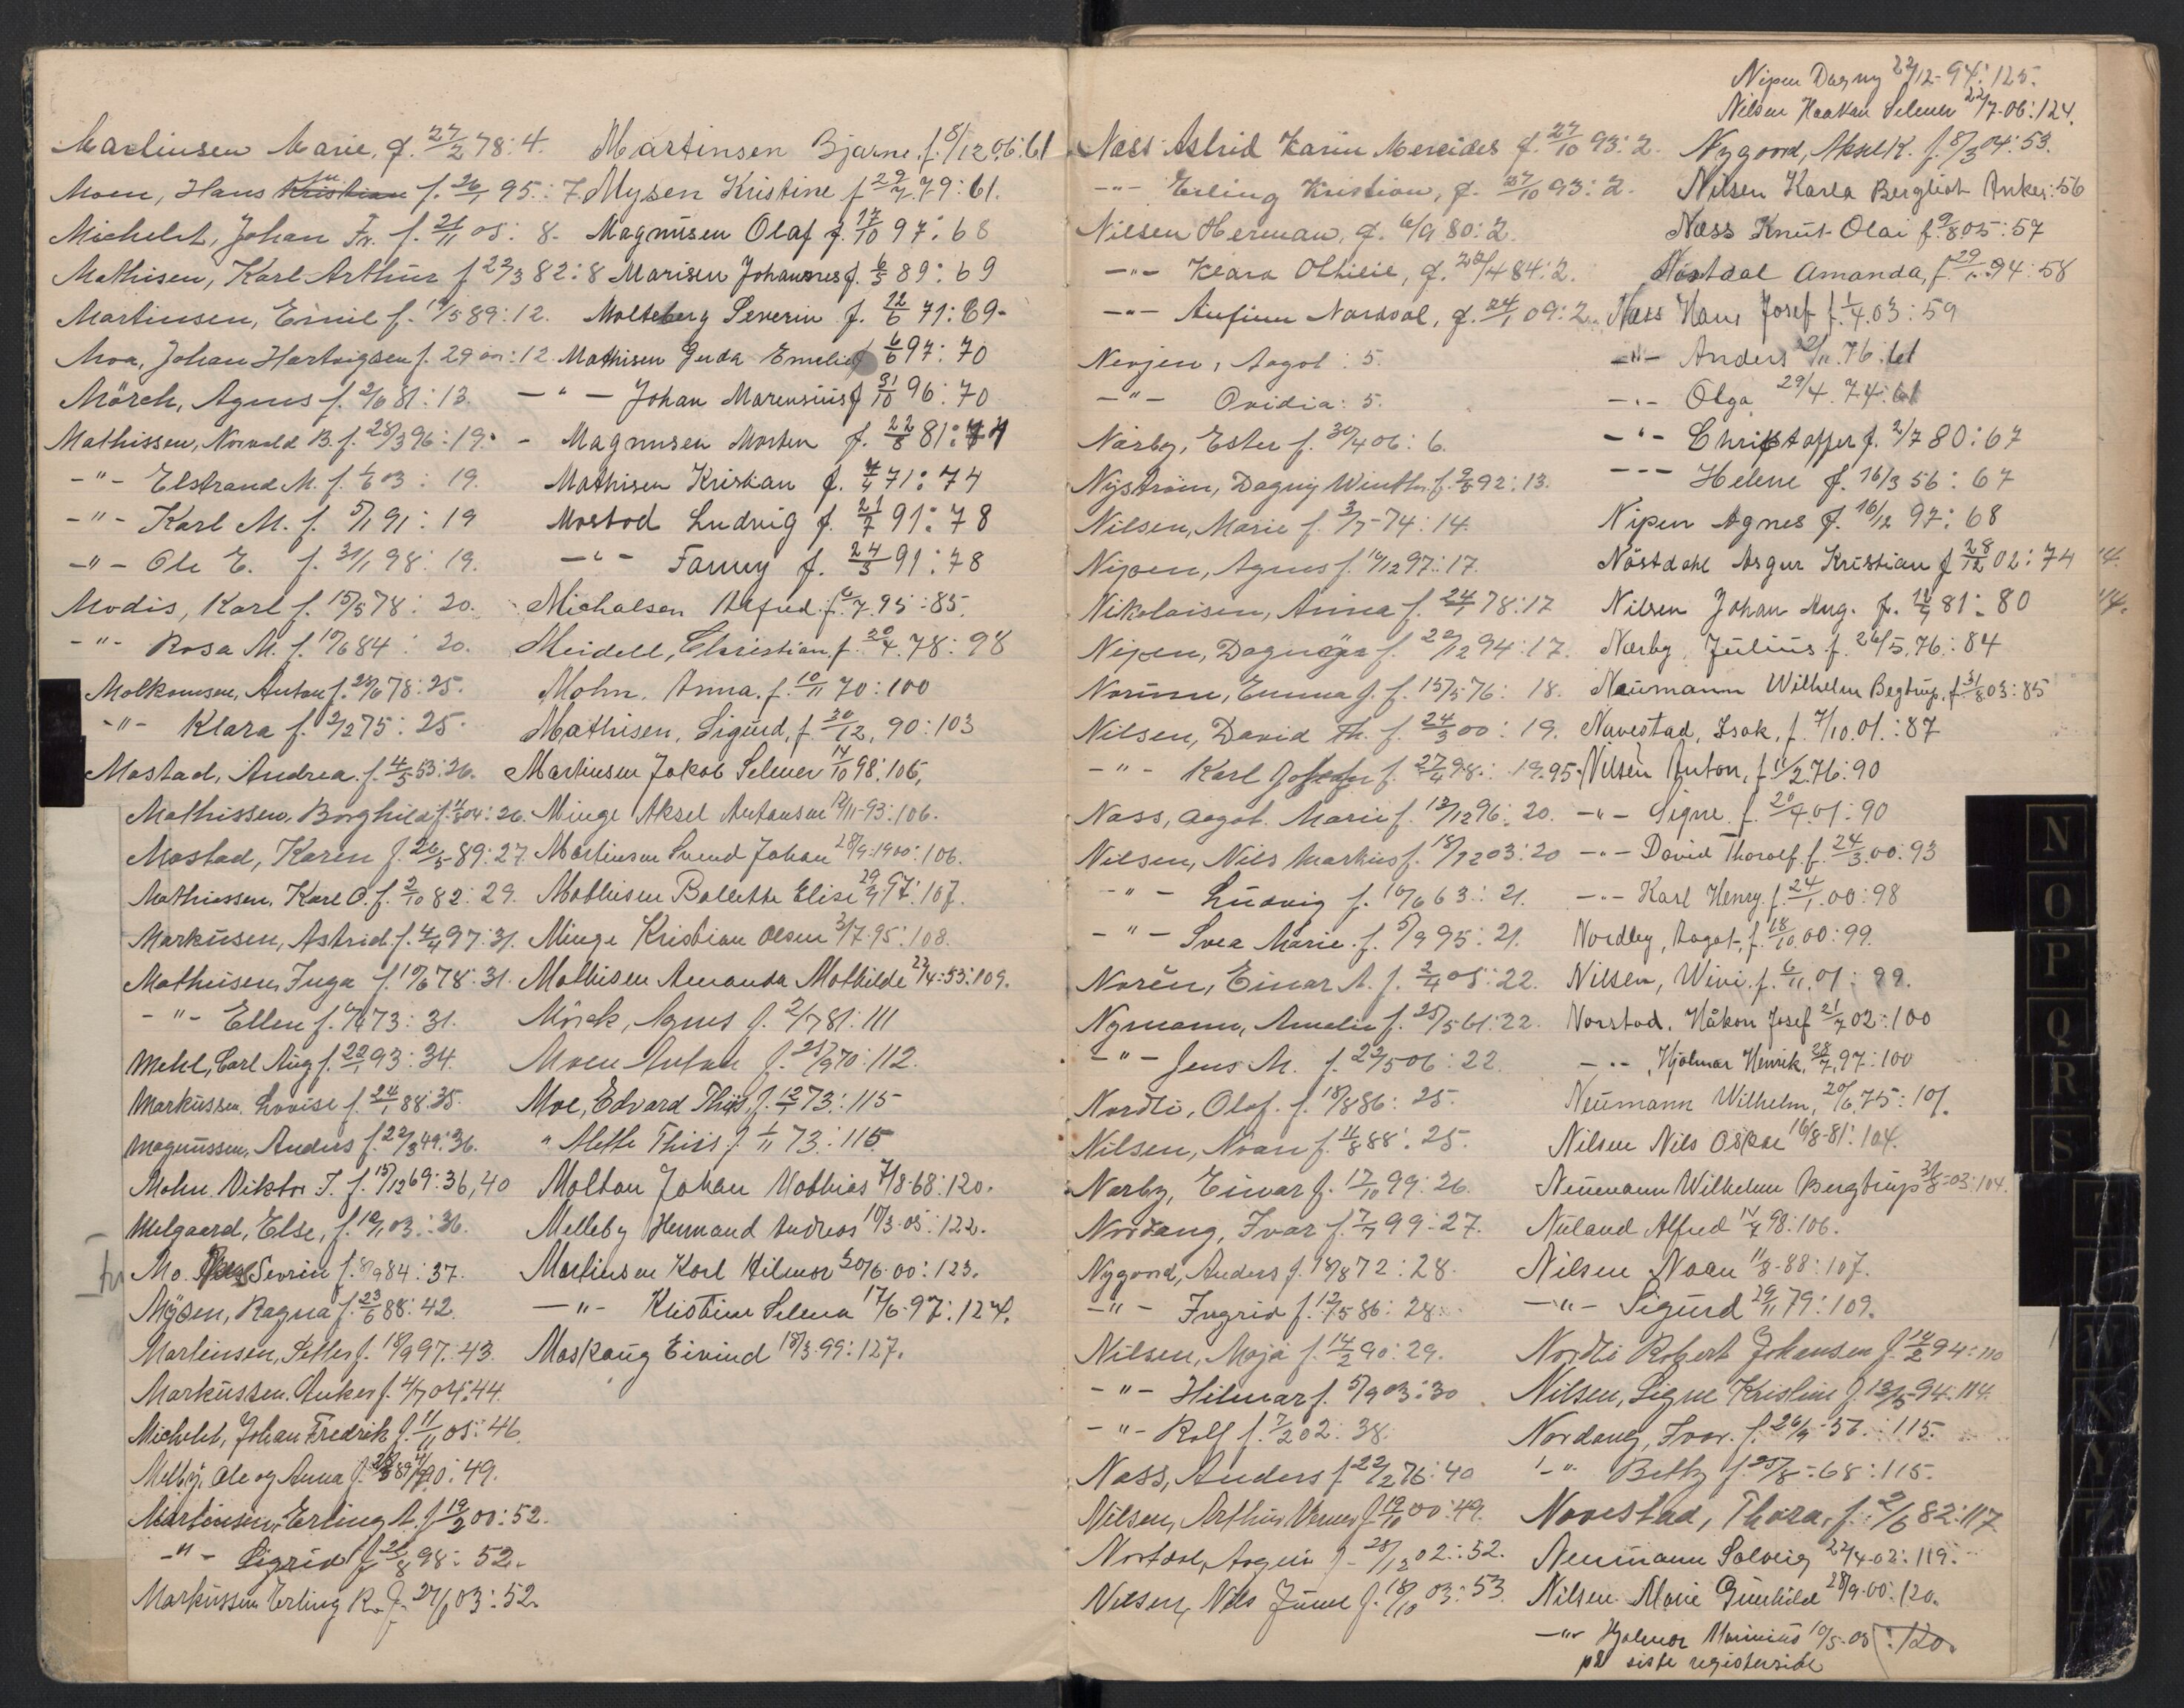 Martinsen Marie, f. 27/2 78: 4.
Moen, Hans f. 26/1 95: 7.
Michelet, Johan Fr. f. 21/11 05: 8.
Mathisen, Karl Arthur f 22/3 82: 8
Martinsen, Emil f. 19/5 89: 12.
Moa, Johan Hartvigsen f. 29 : 12
Mörch, Agnes f. 2/6 81: 13.
Mathissen, Norvald B. f. 28/3 96: 19.
-"- Elstrand M. f. 1/6 03: 19.
-"- Karl M. f. 5/1 91: 19
-"- Ole E. f. 31/1 98: 19.
Modis, Karl f. 15/5 78: 20.
-"- Rosa M. f. 19/6 84: 20.
Molkomsen, Anton f. 78: 25.
-"- Klara f. 2/2 75: 25.
Mostad, Andrea f. 4/5 53: 26.
Mathissen, Borghild f. 04: 26.
Mostad, Karen f. 26/5 89: 27.
Mathiessen, Karl O. f. 2/10 82: 29.
Markusen, Astrid f. 4/4 97: 31.
Mathisen, Inga f. 10/6 78: 31.
-"- Ellen f. 73: 31.
Mehl, Carl Aug f. 22/1 93: 34.
Markussen, Lovise f. 24/1 88: 35.
Magnussen, Anders f. 22/3 49: 36.
Mohn Viktor T. f. 15/12 69: 36, 40
Melgaard, Else, f. 03: 36.
Mo. Sevrin f. 8/9 84: 37.
Mysen, Ragna f. 23/6 88: 42.
Martinsen, Petter f. 18/9 97: 43.
Markussen, Anker f. 4/7 04: 44.
Michelet, Johan Fredrik f. 11/11 05: 46.
Melby, Ole og Anna f. : 49.
Martinsen, Erling A. f. 19/2 00: 52.
-"- Sigrid f. 98: 52.
Markussen Erling R. f. 03: 52.
Martinsen Bjarne f. 8/12 06: 61
Mysen Kristine f 29/7 79: 61.
Magnusen Olaf f. 17/10 97: 68
Marisen Johannes f. 6/5 89: 69
Molteberg Severin f. 22/6 71: 69.
Mathisen Guda Emelie f 6/6 97: 70
-"- Johan Marensius f 31/10 96: 70
Magnusen Morten f. 22/8 81: 74
Mathisen Kristian f. 71: 74
Mostod Ludvig f. 21/7 91: 78
-"- Fanny f. 24/5 91: 78
Michalsen Alfred f. 6/7 95: 85.
Meidell, Christian f. 20/4 78: 98
Mohn, Anna f. 10/11 70: 100
Mathisen, Sigurd, f. 30/12, 90: 103
Martinsen Jakob Selmer 14/10 98: 106,
Minge Aksel Antonsen 12/11-93: 106.
Martinsen Svend Johan 28/9-1900: 106.
Mathisen Ballette Elise 97: 107.
Minge Kristian Olsen 3/7-95: 108.
Mathisen Amanda Mathilde 22/4-53: 109.
Mörck, Agnes f. 2/7 81: 111
Moen Anton f. 25/9 70: 112.
Moe, Edvard Thiis f. 12/1 73: 115
" Mette Thiis f. 1/11 73: 115
Moltau Johan Mathias 7/8-68: 120.
Melleby Hermand Andreas 19/3-05: 122.
Martinsen Karl Hilmar 30/6-00: 123.
-"- Kristine Selma 17/6-97: 124.
Maskaug Eivind 18/3-99: 127.
Nipen Dagny 22/12-94: 125.
Nilsen Haakon Selmer 22/7-06: 124.
Næss Astrid Karin Mercides f. 27/10 93: 2.
-"- Erling Kristian, f. 27/10 93: 2.
Nilsen Herman, f. 6/9 80: 2.
-"- Klara Othilie, f. 20/4 84: 2.
-"- Anfinn Nordvol, f. 24/1 09: 2.
Nerjen, Aagot: 5.
-"- Ovidia: 5.
Nærby, Ester f. 30/4 06: 6.
Nyström, Dagny Winther f. 92: 13.
Nilsen, Marie f. 3/7-74: 14.
Nipen, Agnes f. 16/12 97: 17.
Nikolaisen, Anna f. 24/1 78: 17
Nipen, Dagny f. 22/12 94: 17.
Norunn, Emma J. f. 15/5 76: 18.
Nilsen, David Th. f. 24/3 00: 19.
-"- Karl f. 27/4 98: 19. 95.
Næss, Aagot Marie f. 12/12 96: 20.
Nilsen, Nils Markius f. 18/12 03: 20
-"- Ludvig f. 10/6 63: 21.
-"- Svea Marie f. 5/9 95: 21.
Norén, Einar A. f. 2/4 05: 22.
Nymann, Amelie f. 25/5 61: 22.
-"- Jens M. f. 22/5 06: 22.
Nordli, Olaf f. 18/8 86: 25.
Nilsen, Noan f. 11/8 88: 25.
Nærby, Einar f. 12/10 99: 26.
Nordang, Ivar f. 7/7 99: 27.
Nygaard, Anders f. 18/8 72: 28.
-"- Ingrid f. 12/5 86: 28.
Nilsen, Maja f. 14/2 90: 29.
-"- Hilmar f. 5/9 03: 30
-"- Rolf f. 7/2 02: 38.
Næss, Anders f. 22/2 76: 40
Nilsen, Arthur Verner f. 19/10 00: 49.
Nostdal, Asgeir f. 28/12 02: 52.
Nilsen, Nils June f. 18/10 03: 53.
Nygaard, Aksel K. f. 8/3 04: 53.
Nilsen Karla Bergliot Anker: 56
Næss Knut Olai f. 9/8 05: 57
Nöstdal Amanda, f. 94: 58
Næss Hans Josef f. 1/4 03: 59
-"- Anders 22/11 76: 61
-"- Olga 29/4 74: 61
-"- Christoffer f. 2/7 80: 67
-"- Helene f. 16/3 56: 67
Nipen Agnes f. 16/12 97: 68
Nöstdahl Asgur Kristian f 28/12 02: 74
Nilsen Johan Aug. f. 81: 80
Nærby, Julius f. 26/5 76: 84
Neumann Wilhelm Begtrup, f 31/8 03: 85
Navestad, Isak, f. 7/10 01: 87
Nilsen Anton, f. 11/2 76: 90
-"- Signe f. 20/4 01: 90
-"- David Thoralf f. 24/3 00: 93
-"- Karl Henry f. 24/1 00: 98
Nordby, Aagot f. 18/10 00: 99.
Nilsen, Wivi f. 6/11 01: 99.
Norstad, Håkon Josef 21/7 02: 100
-"- Hjalmar Henrik, 28/7 97: 100
Neumann Wilhelm, 20/6 75: 101.
Nilsen Nils Oskar 16/8-81: 104.
Neumann Wilhelm Bergtrup 31/8-03: 104.
Nuland Alfred 98: 106.
Nilsen Noan 11/8-88: 107.
-"- Sigurd 29/11 79: 109.
Nordli Robert Johansen f. 14/2 94: 110
Nilsen, Signe Kristine f. 13/5-94: 114.
Nordang, Ivar f. 26/9-56: 115.
-"- Betty f. 25/8-68: 115.
Navestad, Thora, f. 2/6 82: 117
Neumann Solveig 22/4-02: 119.
Nilsen Marie Gunhilde 28/9-00: 120.
-"- Hjalmar Marinius 10/5-05: 120.
på siste registerside
N
O
P
Q
R
S